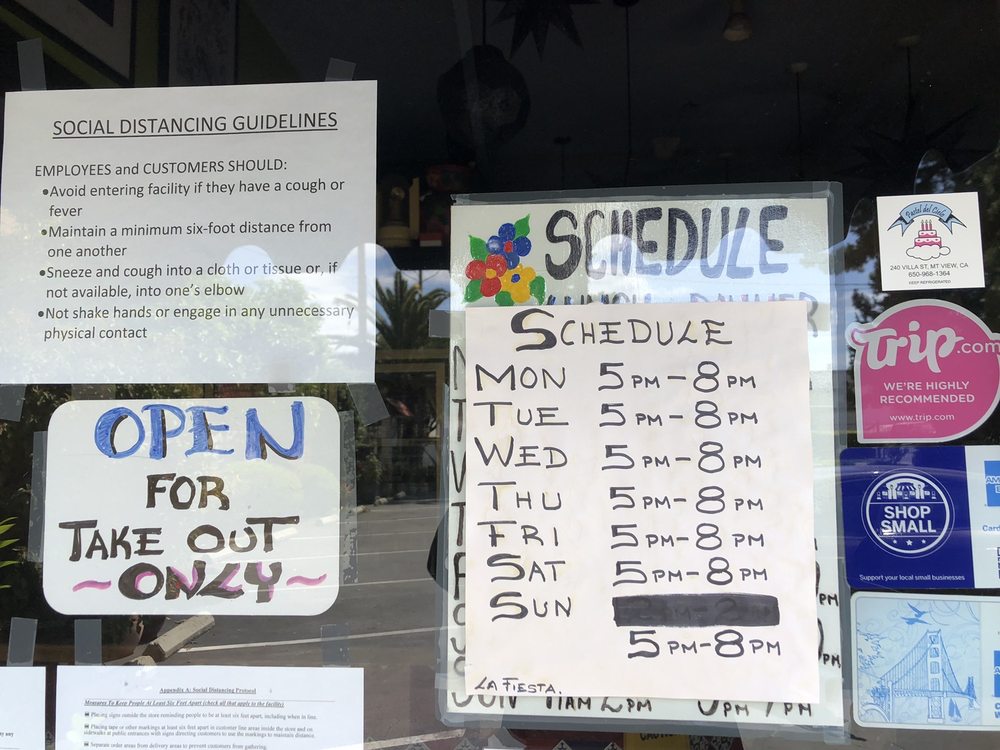 SOCIAL DISTANCING GUIDELINES
EMPLOYEES and CUSTOMERS SHOULD:
•Avoid entering facility if they have a cough or
fever
•Maintain a minimum six-foot distance from
one another
•Sneeze and cough into a cloth or tissue or, if
not available, into one's elbow
•Not shake hands or engage in any unnecessary
physical contact
OPEN
FOR
TAKE OUT
~ONLY~
Appendix A: Social Distancing Protocol
Measures To Keep People At Least Six Feet Apart (check all that apply to the facility)
Placing signs outside the store reminding people to be at least six feet apart, including when in line.
Placing tape or other markings at least six feet apart in customer line areas inside the store and on
sidewalks at public entrances with signs directing customers to use the markings to maintain distance.
Separate order areas from delivery areas to prevent customers from gathering.
SCHEDULE
SCHEDULE
MON 5PM-8PM
TUE 5PM-8PM
WED 5PM-8PM
THU 5PM-8PM
FRI 5PM-8PM
SAT 5PM-8PM
SUN
5PM-8PM
LA FIESTA.
SUN 11AM 2PM
Pastel del Cielo
240 VILLA ST, MT VIEW, CA
650-968-1364
KEEP REFRIGERATED
Trip.com
WE'RE HIGHLY
RECOMMENDED
www.trip.com
SHOP
SMALL
Support your local small businesses